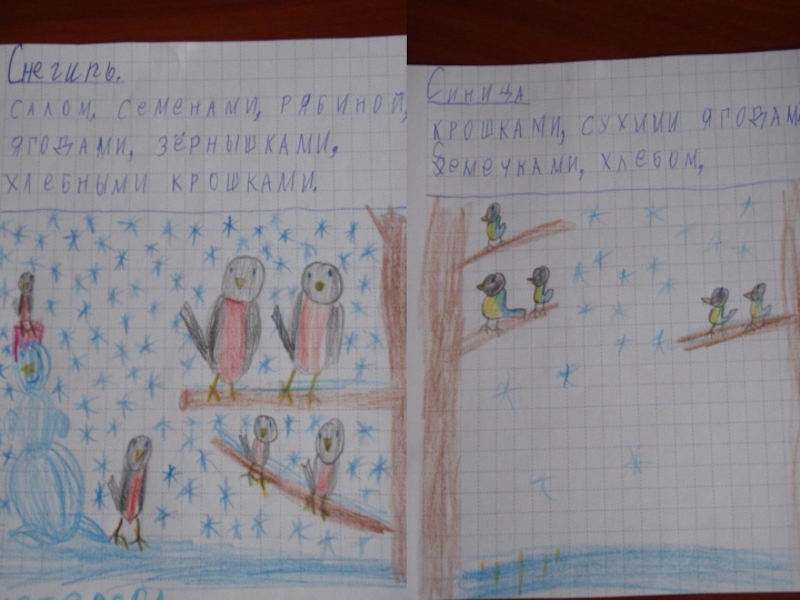 Снегирь.
САЛОМ, СЕМЕНАМИ, РЯБИНОЙ,
ЯГОДАМИ, ЗЁРНЫШКАМИ,
ХЛЕБНЫМИ КРОШКАМИ.
Синица
КРОШКАМИ, СУХИМИ ЯГОДАМ
СЕМЕЧКАМИ, ХЛЕБОМ,